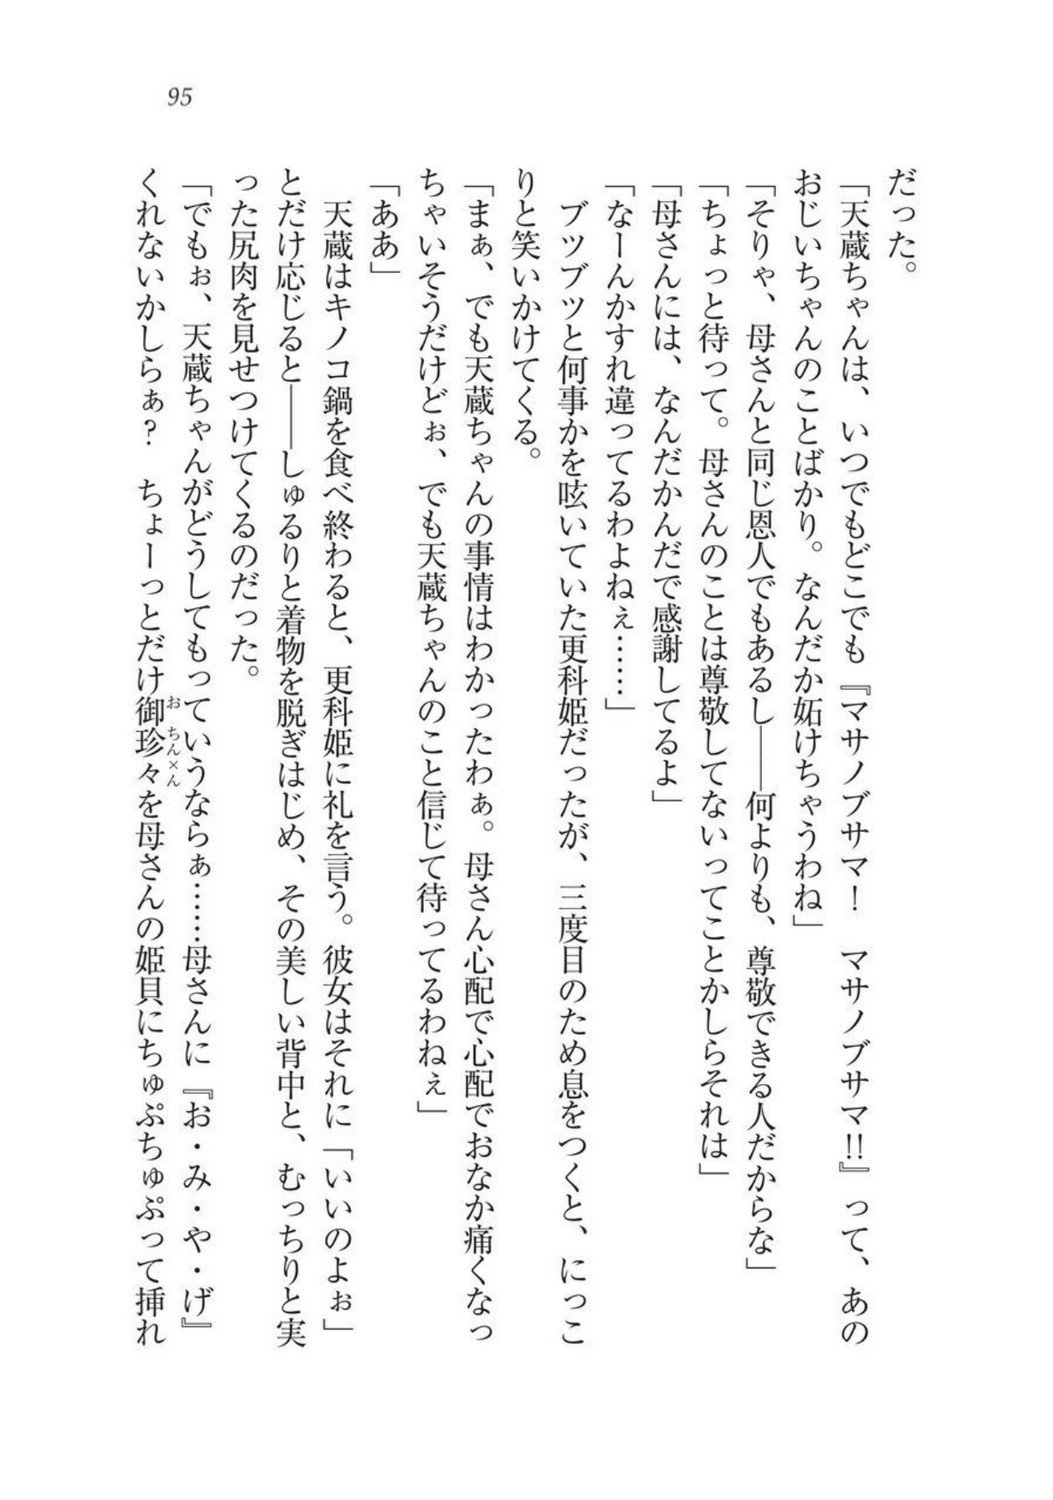 95
だった。
「天蔵ちゃんは、いつでもどこでも『マサノブサマ！　マサノブサマ!!』って、あの
おじいちゃんのことばかり。なんだか妬けちゃうわね」
「そりゃ、母さんと同じ恩人でもあるし――何よりも、尊敬できる人だからな」
「ちょっと待って。母さんのことは尊敬してないってことかしらそれは」
「母さんには、なんだかんだで感謝してるよ」
「なーんかすれ違ってるわよねぇ……」
　ブツブツと何事かを呟いていた更科姫だったが、三度目のため息をつくと、にっこ
りと笑いかけてくる。
「まぁ、でも天蔵ちゃんの事情はわかったわぁ。母さん心配で心配でおなか痛くなっ
ちゃいそうだけどぉ、でも天蔵ちゃんのこと信じて待ってるわねぇ」
「ああ」
　天蔵はキノコ鍋を食べ終わると、更科姫に礼を言う。彼女はそれに「いいのよぉ」
とだけ応じると――しゅるりと着物を脱ぎはじめ、その美しい背中と、むっちりと実
った尻肉を見せつけてくるのだった。
「でもぉ、天蔵ちゃんがどうしてもっていうならぁ……母さんに『お・み・や・げ』
くれないかしらぁ？　ちょーっとだけ御珍々を母さんの姫貝にちゅぷちゅぷって挿れ
お ちん×ん